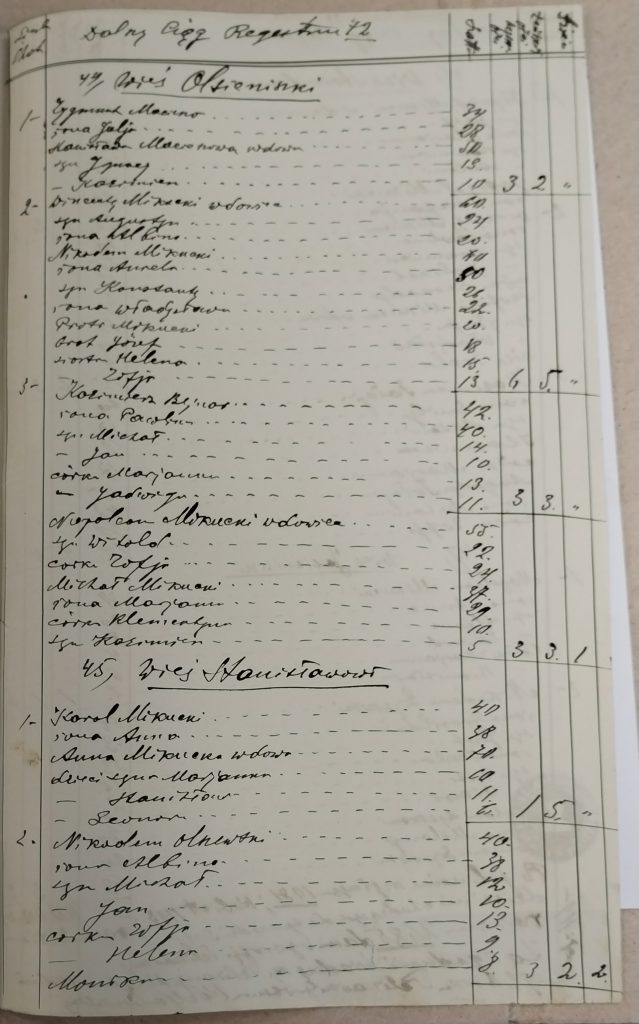 Dalszy Ciąg Regestrum 72
44, Wieś Olsieninki
1- Zygmunt Macenno 34
żona Julja 28
wdowa 50
syn Ignacy 13.
– Kazimierz 10 3 2 „
2- Wincenty Mikucki wdowiec 60
syn Augustyn 24
żona Albina 20.
Nikodem Mikucki 40
żona Aurela 30
syn Konstanty 2
żona Władysława 22.
Piotr Mikucki 20.
brat Józef 18
siostra Helena 15
Zofja 13 6 5. „
3- Kazimierz 42.
żona Paulina 40.
syn Michał 14.
– Jan 10.
córka Marjanna 13.
– Jadwiga 11. 3 3. „
Napoleon Mikucki wdowiec 55.
syn Witold 22.
córka Zofja 24.
Michał Mikucki 37.
żona Marjanna 29.
córka Klementyna 10.
syn Kazimierz 5 3 3. 1
45, Wieś Stanisławowo
1- Karol Mikucki 40
żona Anna 38
Anna Mikucka wdowa 70.
dzieci Marjanna
– Stanisław 11.
– Leonor 6. 1 5. „
2. Nikodem Olszewski 40.
żona Albina 38
syn Michał 12
– Jan 10.
córka Zofja 13.
– Helena 9.
Monika 8. 3 2. 2.